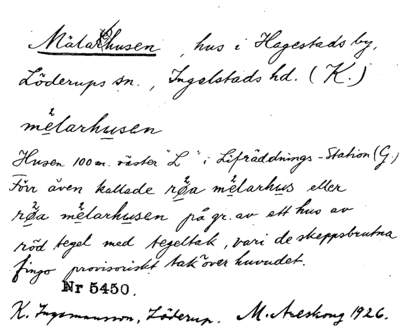 Mälarhusen, hus i Hagestads by,
Löderups sn., Ingelstads hd. (K.)
melarhusen
Husen 100 m. väster "L" i Lifräddnings-Station (G.)
Förr även kallade röa melarhus eller
röa melarhusen på gr. av ett hus av
röd tegel med tegeltak, vari de skeppsbrutna
fingo provisoriskt tak över huvudet.
Nr 5450.
K. Ingemansson, Löderup. M. Areskoug 1926.